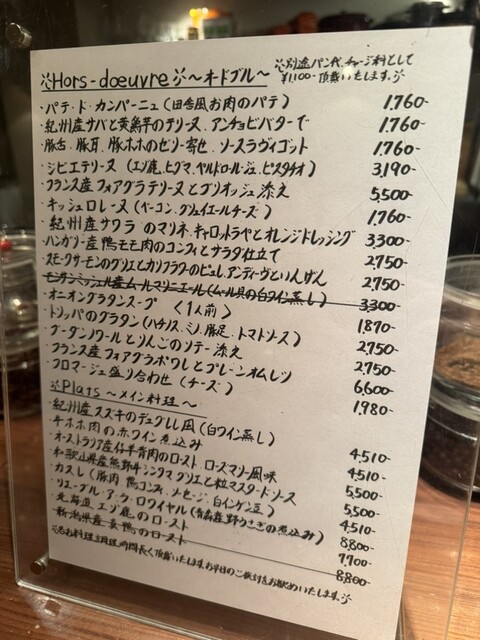 ※Hors-doeuvre※〜オードブル〜
※別途パン代、チャージ料として
¥1,100-頂戴いたします。※
・パテ・ド・カンパーニュ（田舎風お肉のパテ） 1,760-
・紀州産サバと黄鮮竿のテリーヌ、アンチョビバターで 1,760-
・豚舌、豚耳、豚ホホのゼリー寄せ、ソースラヴィゴット 1,760-
・ジビエテリーヌ（エゾ鹿、ヒグマ、ペルドロールージュ、ピスタチオ） 3,190-
・フランス産フォアグラテリーヌとブリオッシュ添え 5,500-
・キッシュロレーヌ（ベーコン、グリュイエールチーズ） 1,760-
・紀州産サワラのマリネ、キャロットラペとオレンジドレッシング 3,300-
・ハンガリー産鴨モモ肉のコンフィとサラダ仕立て 2,750-
・スモークサーモンのグリエとカリフラワーのピュレ、アンディーヴといんげん 2,750-
・モンサンミッシェル産ムールマリニエール（ムール貝の白ワイン蒸し） 3,300-
・オニオングラタンスープ 〈1人前〉 1,870-
・トリッパのグラタン（ハチノス、ミノ、豚足、トマトソース） 2,750-
・ブーダンノワールとりんごのソテー添え 2,750-
・フランス産フォアグラポワレとプレーンオムレツ 6,600-
・フロマージュ盛り合わせ（チーズ） 1,980-
※Plats 〜メイン料理〜
・紀州産スズキのデュグレレ風（白ワイン蒸し） 4,510-
・牛ホホ肉の赤ワイン煮込み 4,510-
・オーストラリア産仔羊背肉のロースト、ローズマリー風味 5,500-
・和歌山県産熊野牛シンタマグリエと粒マスタードソース 5,500-
・カスレ（豚肉、鴨コンフィ、ソーセージ、白インゲン豆） 4,510-
・リエーブル・ア・ラ・ロワイヤル（青森産野うさぎの煮込み） 8,800-
・北海道エゾ鹿のロースト 7,700-
・新潟県産真鴨のロースト 8,800-
※お料理は調理時間長く頂戴いたします。お早目のご注文をお勧めいたします。※